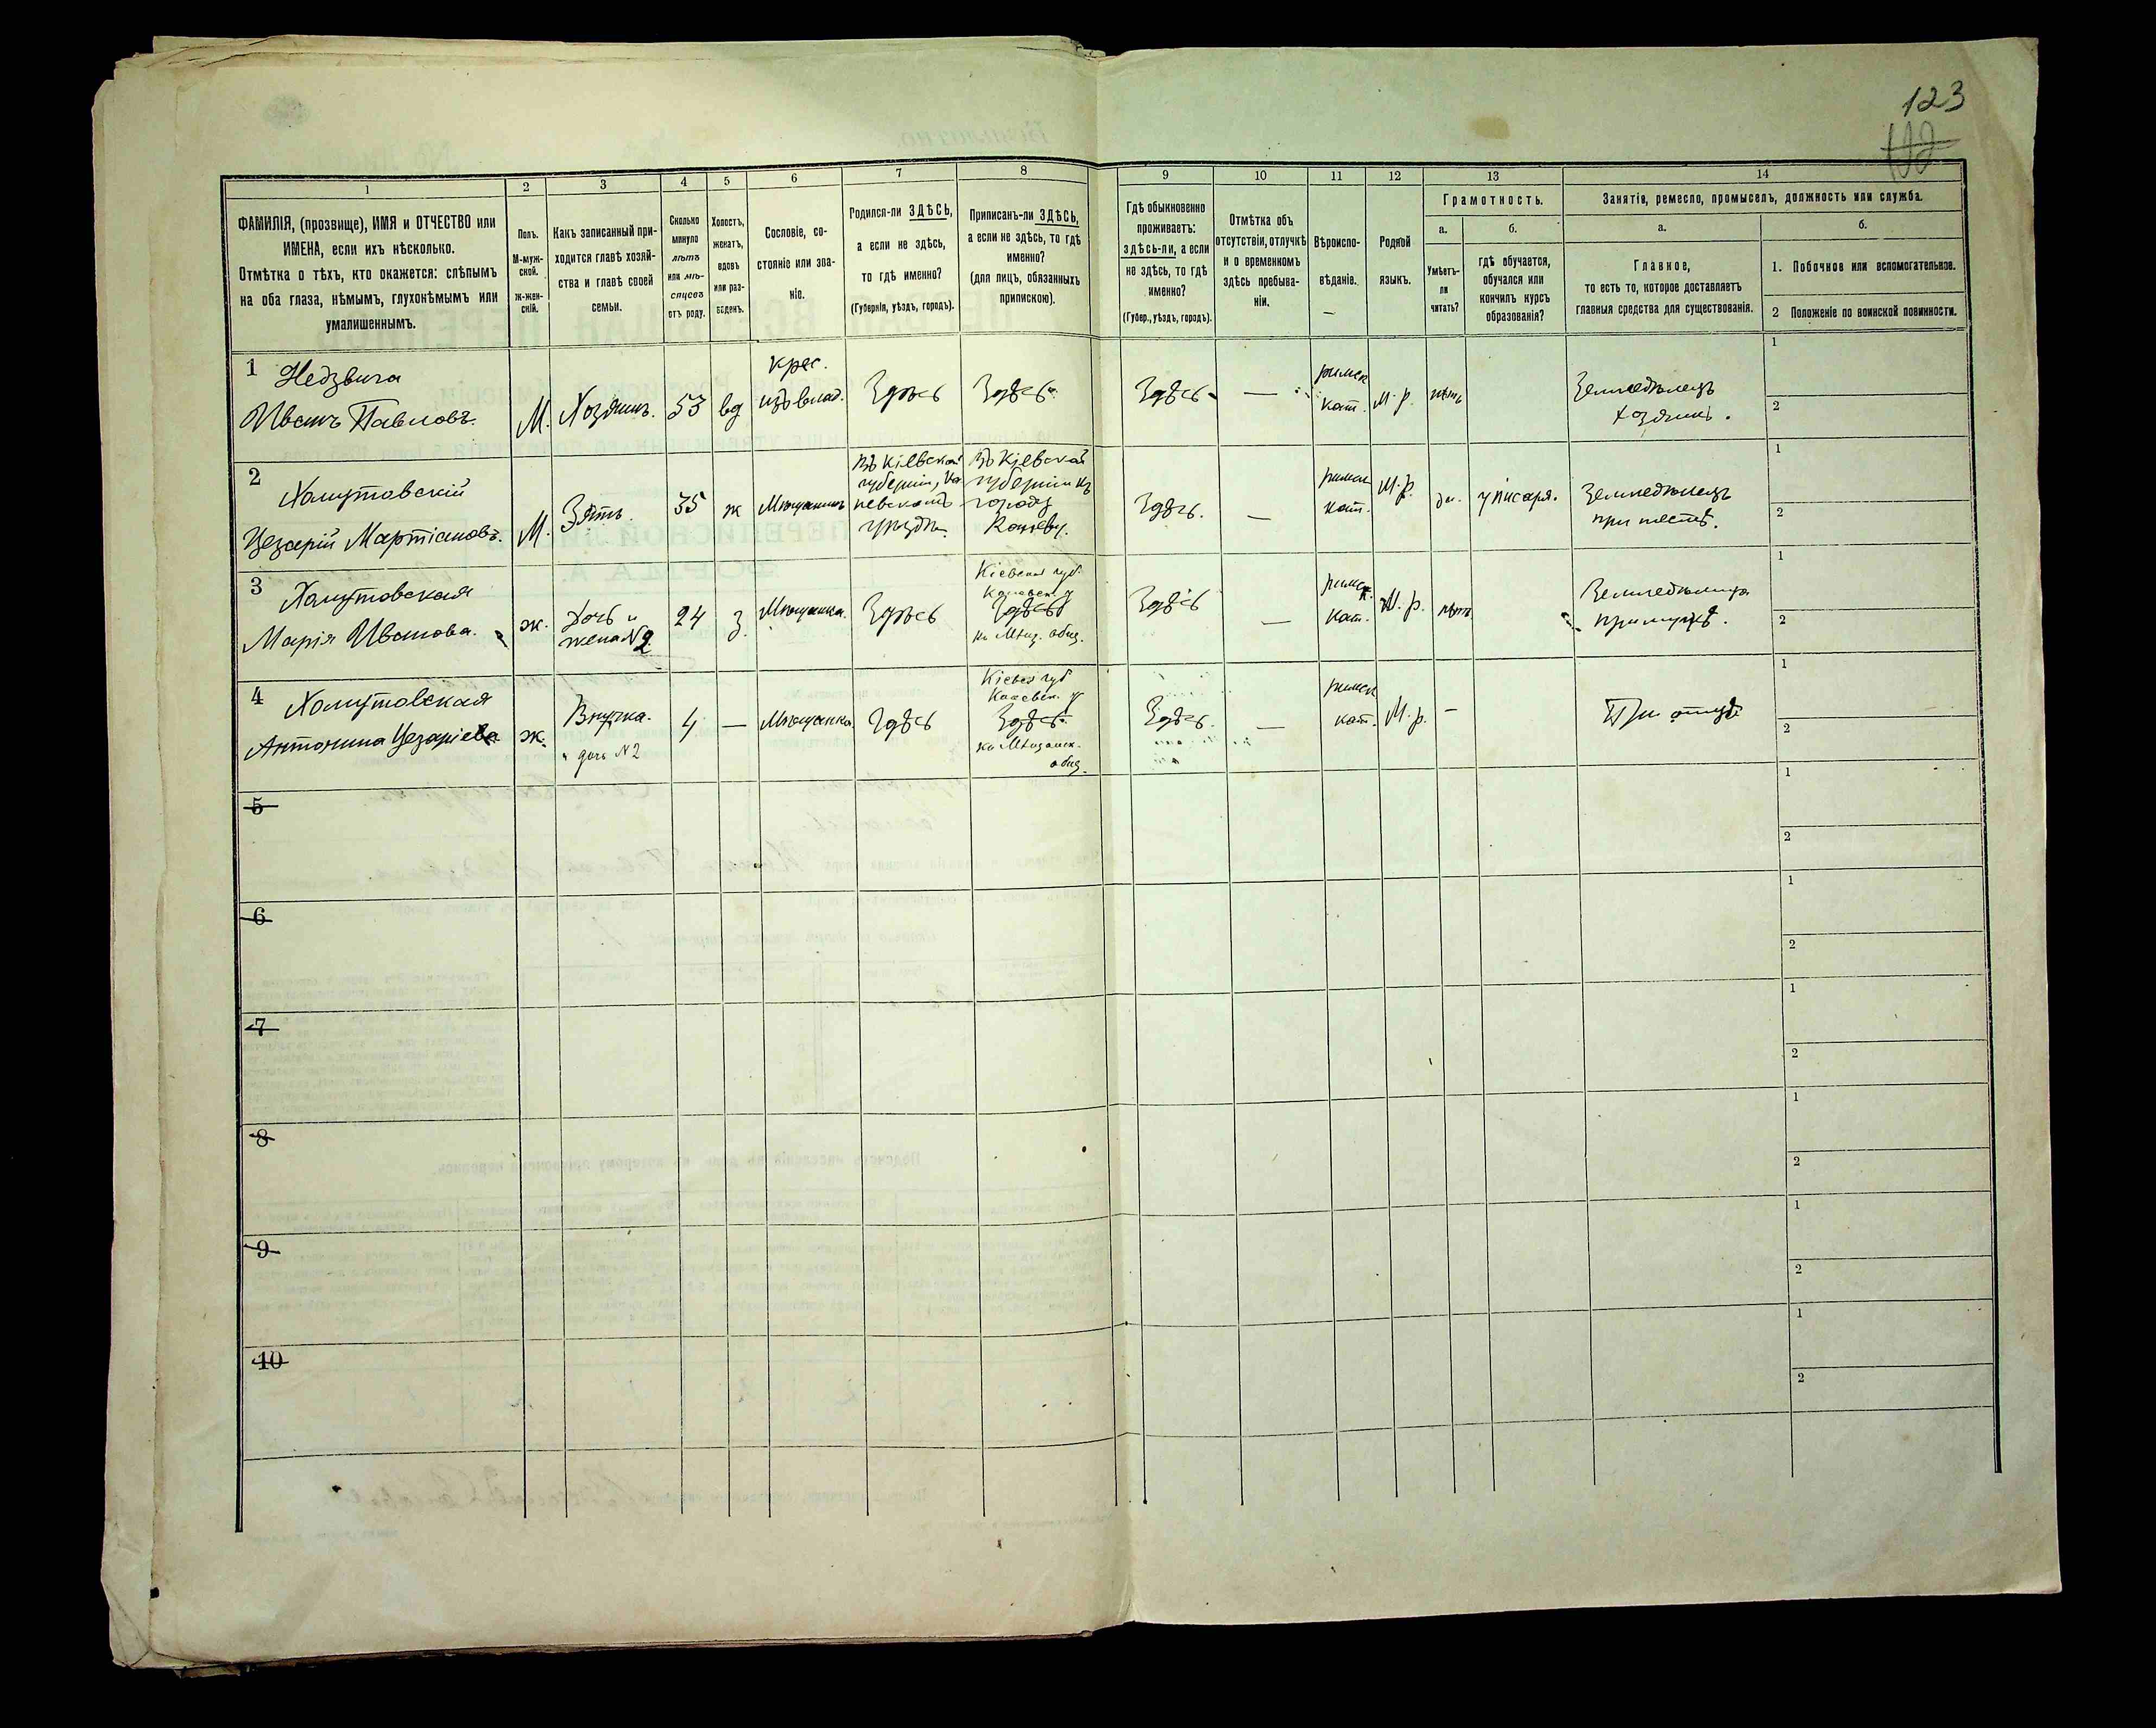 123
122
1
2
3
4
5
6
7
8
9
10
11
12
13
14
ФАМИЛІЯ, (прозвище), ИМЯ и ОТЧЕСТВО или
ИМЕНА, если ихъ нѣсколько.
Отмѣтка о тѣхъ, кто окажется: слѣпымъ
на оба глаза, нѣмымъ, глухонѣмымъ или
умалишеннымъ.
Полъ.
М-муж-
ской.
Ж-жен-
скій.
Какъ записанный при-
ходится главѣ хозяй-
ства и главѣ своей
семьи.
Сколько
минуло
лѣтъ
или мѣ-
сяцевъ
отъ роду.
Холостъ,
женатъ,
вдовъ
или раз-
веденъ.
Сословіе, со-
стояніе или зва-
ніе.
Родился-ли ЗДѢСЬ,
а если не здѣсь,
то гдѣ именно?
(Губернія, уѣздъ, городъ).
Приписанъ-ли ЗДѢСЬ,
а если не здѣсь, то гдѣ
именно?
(для лицъ, обязанныхъ
припискою).
Гдѣ обыкновенно
проживаетъ:
здѣсь-ли, а если
не здѣсь, то гдѣ
именно?
(Губер., уѣздъ, городъ).
Отмѣтка объ
отсутствіи, отлучкѣ
и о временномъ
здѣсь пребыва-
ніи.
Вѣроиспо-
вѣданіе.
Родной
языкъ.
Грамотность.
а.
Умѣетъ-
ли
читать?
б.
гдѣ обучается,
обучался или
кончилъ курсъ
образованія?
Занятія, ремесло, промыселъ, должность или служба.
а.
Главное,
то есть то, которое доставляетъ
главныя средства для существованія.
б.
1. Побочное или вспомогательное.
2 Положеніе по воинской повинности.
1 Недзвига
Иванъ Павловъ.
М.
Хозяинъ.
53
вд
крес.
изъ влад.
Здѣсь
Здѣсь.
Здѣсь
—
римск
кат.
М. р.
нѣтъ
Земледѣлецъ
хозяинъ.
1
2
2
Хомутовскій
Цезарій Мартіановъ.
М.
Зять.
35
ж
Мѣщанинъ
Въ Кіевской
губерніи, Ка
невскомъ
уѣздѣ.
Въ Кіевской
губерніи къ
городу
Каневу.
Здѣсь.
—
римск
кат.
М. р.
да.
у писаря.
Земледѣлецъ
при тестѣ.
1
2
3
Хомутовская
Марія Иванова.
ж.
Дочь и
жена № 2
24
з.
Мѣщанка.
Здѣсь
Кіевской губ.
Каневск. у
Здѣсь
къ Мѣщ. общ.
Здѣсь
—
римск.
кат.
М. р.
нѣтъ
Земледѣлица
при мужѣ.
1
2
4
Хомутовская
Антонина Цезаріева
ж.
Внучка.
и дочь № 2
4
—
Мѣщанка
Здѣсь
Кіевск губ
Каневск. у
Здѣсь
къ Мѣщанск.
общ.
Здѣсь.
—
римск
кат.
М. р.
—
При отцѣ
1
2
5
1
2
6
1
2
7
1
2
8
1
2
9
1
2
10
1
2